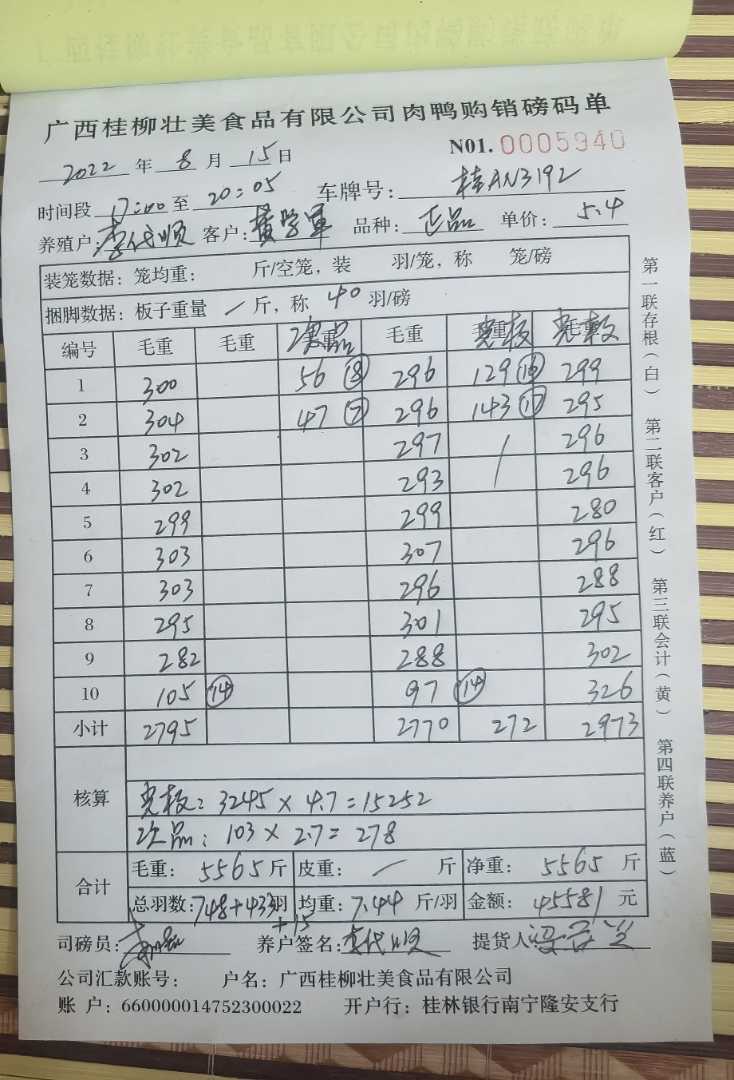 广西桂柳壮美食品有限公司肉鸭购销磅码单
N01. 0005940
2022 年 8 月 15 日
时间段 17:00 至 20:05 车牌号: 桂AN3192
养殖户: 李代顺 客户: 黄学军 品种: 正品 单价: 5.4
装笼数据: 笼均重: 斤/空笼, 装 羽/笼, 称 笼/磅
捆脚数据: 板子重量 / 斤, 称 40 羽/磅
编号 毛重 毛重 次品 毛重 壳板 壳板
1 300 56 ⑧ 296 129 299
2 304 47 ⑦ 296 143 295
3 302 297 / 296
4 302 293 296
5 299 299 280
6 303 307 296
7 303 296 288
8 295 301 295
9 282 288 302
10 105 ⑭ 97 ⑭ 326
小计 2795 2770 272 2973
核算
壳板: 3245 × 4.7 = 15252
次品: 103 × 2.7 = 278
合计
毛重: 5565 斤 皮重: / 斤 净重: 5565 斤
总羽数: 748+433 羽 均重: 7.44 斤/羽 金额: 45581 元
+15
司磅员: 养户签名: 李代顺 提货人
公司汇款账号: 户名: 广西桂柳壮美食品有限公司
账 户: 660000014752300022 开户行: 桂林银行南宁隆安支行
第一联存根(白) 第二联客户(红) 第三联会计(黄) 第四联养户(蓝)